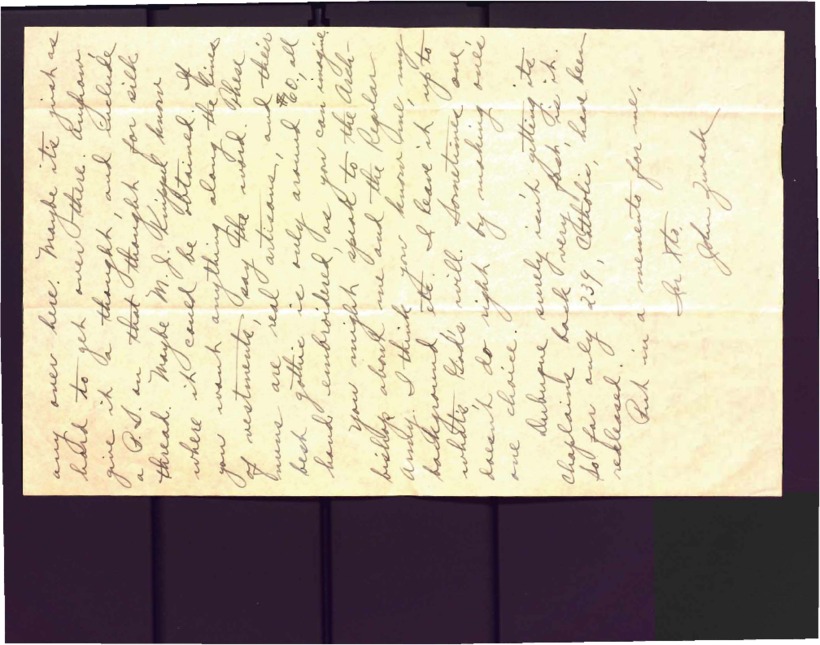 any over here. Maybe it's just as
hard to get over there. Anyhow
give it a thought, and include
a P.S. on that thought for silk
thread. Maybe M. J. know
where it could be obtained. If
you want anything along the lines
of vestments, say the word. These
nuns are real artisans, and their
best gothic is only around $60, all
hand embroidered as you can imagine.
You might speak to the Arch-
bishop about me and the Regular
Army. I think you know me, my
background etc. I leave it up to
what's God's will. Sometimes one
doesn't do right by making one's
own choice.
Dubuque surely isn't getting its
chaplains back very fast, is it.
So far only 239, Catholic, have been
released.
Put in a memento for me.
In Xto,
John Zwack